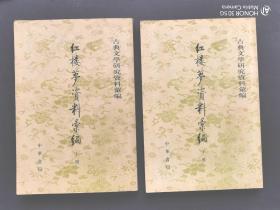 HONOR 30 5G
Matrix Camera
古典文學研究資料彙編
紅樓夢資料彙編
中華書局
古典文學研究資料彙編
紅樓夢資料彙編
中華書局